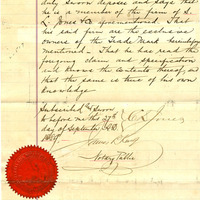 duly sworn deposes and says that
he is a member of the firm of S.
L. Jones & Co aforementioned. That
his said firm are the exclusive
owners of the Trade Mark hereinbefore
mentioned. That he has read the
foregoing claim and specification
and knows the contents thereof, and
that the same is true of his own
knowledge
Subscribed & Sworn
to before me this 27th
day of September
Jones
Notary Public